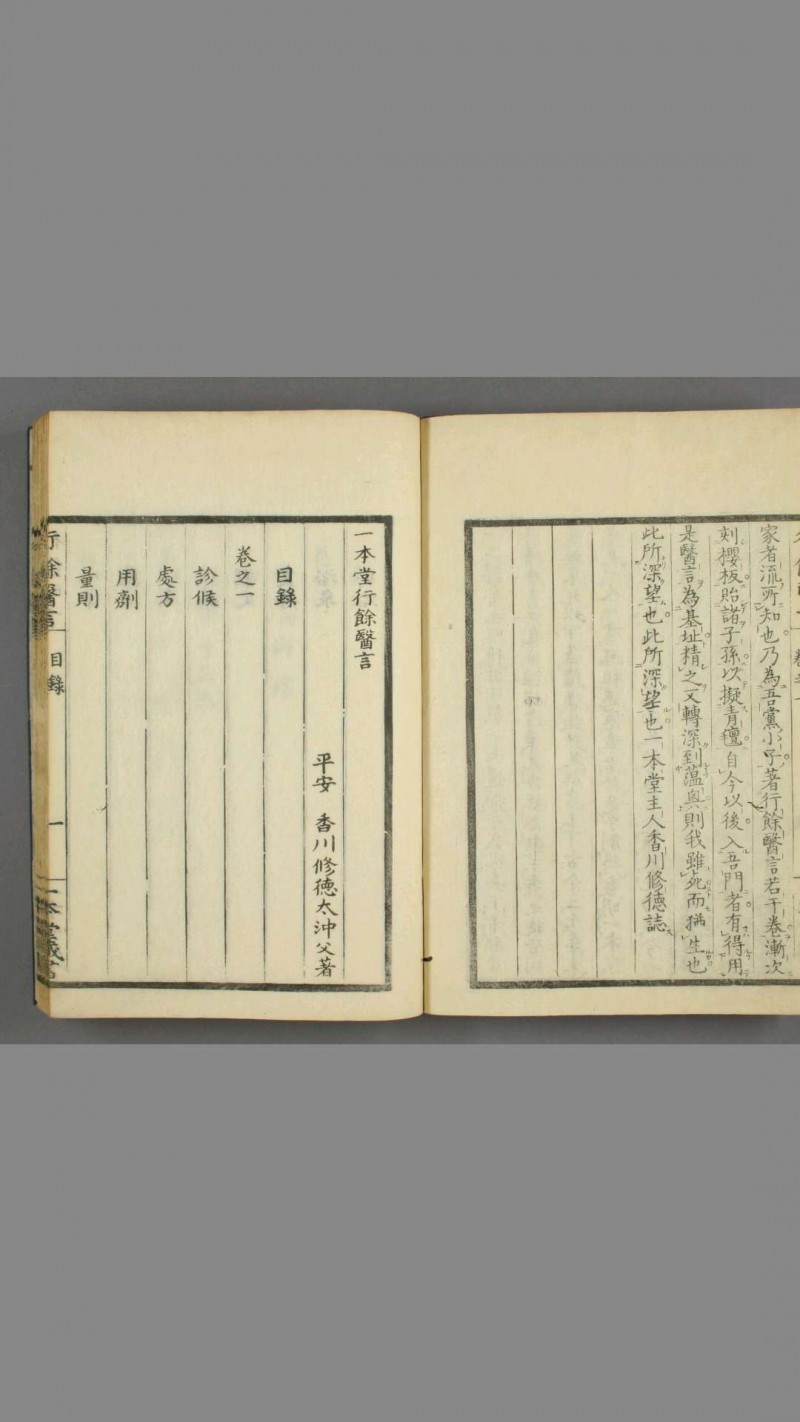 家者流所知也乃為吾黨小子著行餘醫言若干卷漸次
刻櫻板貽諸子孫以擬青氊自今以後入吾門者有得用
是醫言為基址精之又轉深到蘊奧則我雖死而猶生也
此所深望也此所深望也一本堂主人香川修徳誌
一本堂行餘醫言
平安 香川修徳太沖父著
目錄
卷之一
診候
處方
用劑
量則
行餘醫言 目錄 一